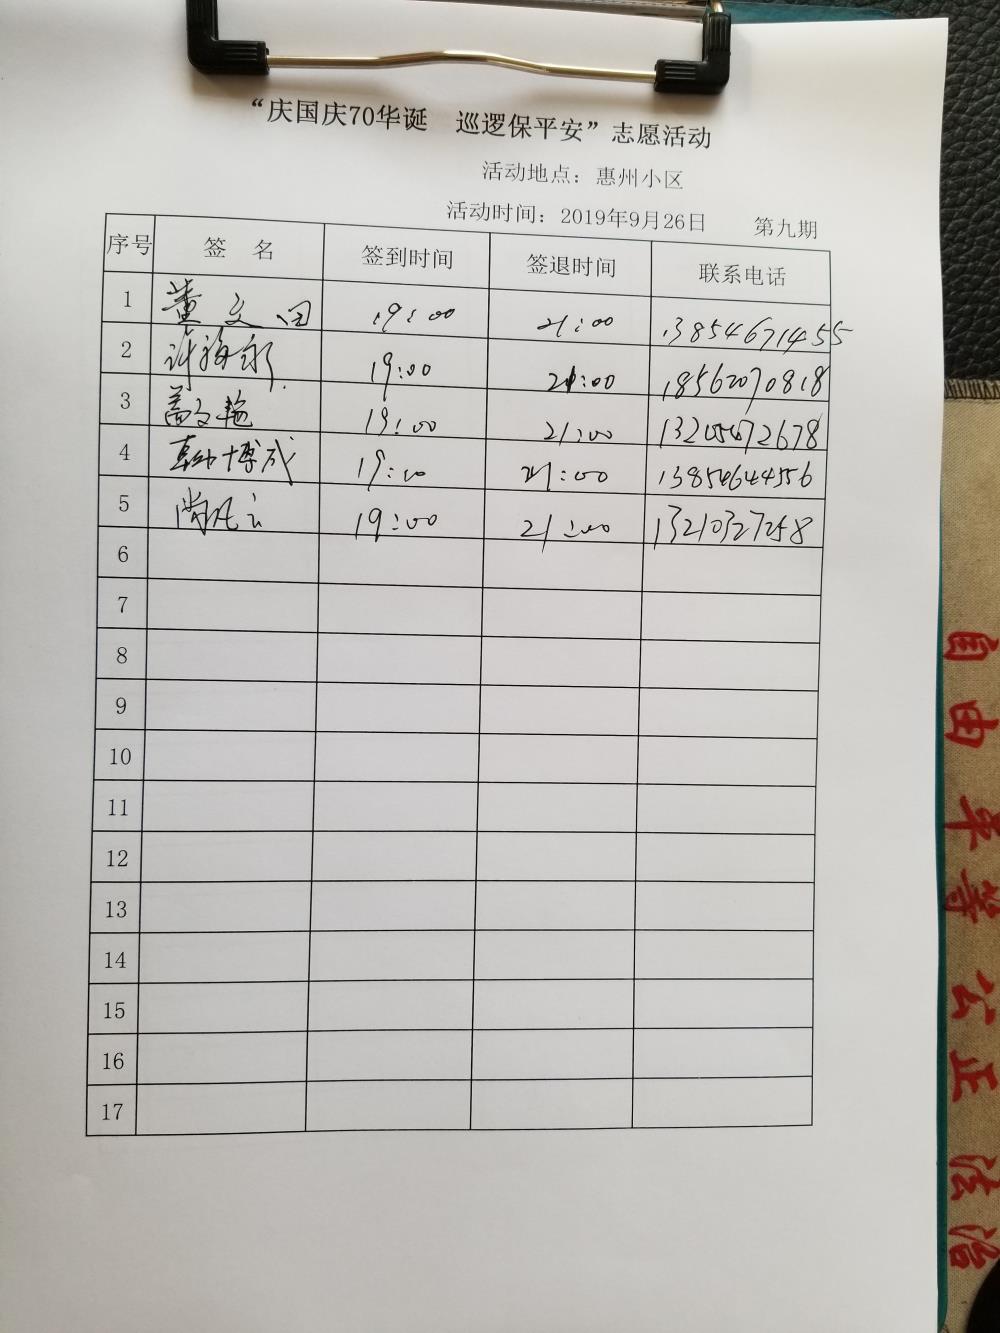 “庆国庆70华诞 巡逻保平安”志愿活动
活动地点：惠州小区
活动时间：2019年9月26日 第九期
序号 签 名 签到时间 签退时间 联系电话
1 董文 19:00 21:00 13854671455
2 许 19:00 21:00 18562070818
3 文艳 19:00 21:00
4 韩博成 19:00 21:00 13854644556
5 尚 19:00 21:00 13210327258
6
7
8
9
10
11
12
13
14
15
16
17
自由平等公正法治